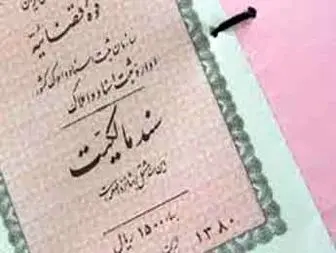 قوه قضائیه
سازمان ثبت اسناد و املاک کشور
اداره ثبت اسناد و املاک
سند مالکیت
بهاء ۱۵۰۰ ریال
۱۳۸۰